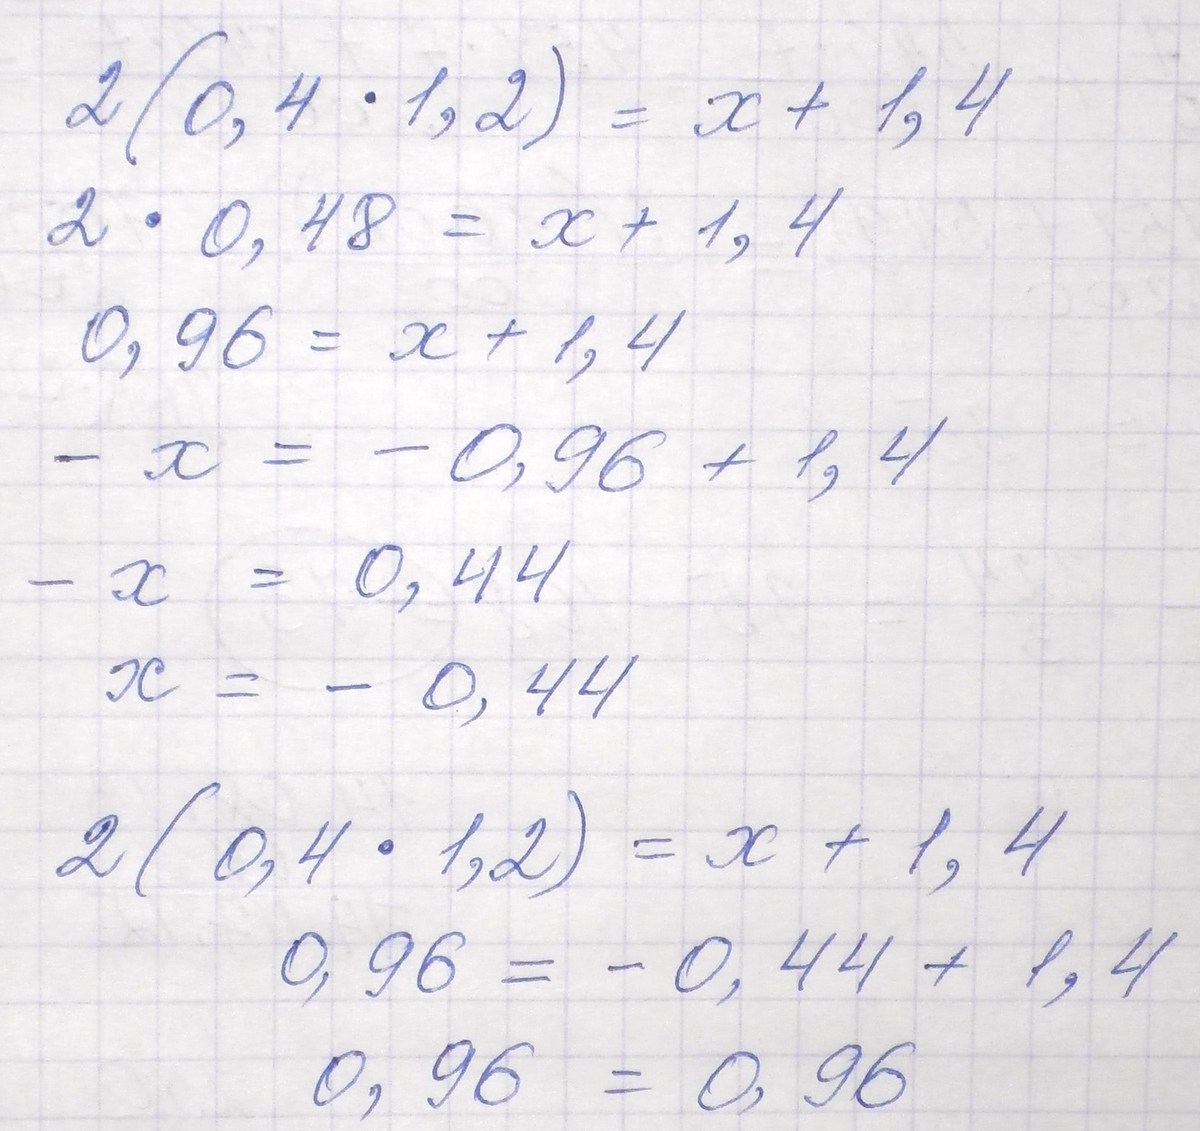 2(0,4 · 1,2) = x + 1,4
2 · 0,48 = x + 1,4
0,96 = x + 1,4
- x = - 0,96 + 1,4
- x = 0,44
x = - 0,44
2(0,4 · 1,2) = x + 1,4
0,96 = - 0,44 + 1,4
0,96 = 0,96